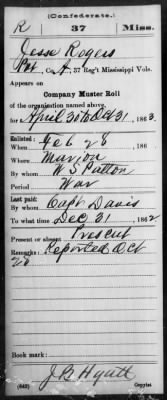 (Confederate.)
R 37 Miss.
Jesse Rogers
Pvt, Co. A, 37 Reg't Mississippi Vols.
Appears on
Company Muster Roll
of the organization named above,
for April 30 to Oct 31, 1863.
Enlisted:
When Feb 28, 186
Where Marion
By whom W S Patton
Period War
Last paid:
By whom Capt Davis
To what time Dec 31, 1862
Present or absent Present
Remarks: Reported Oct
28
Book mark:
J B Hyatt
(642) Copyist.